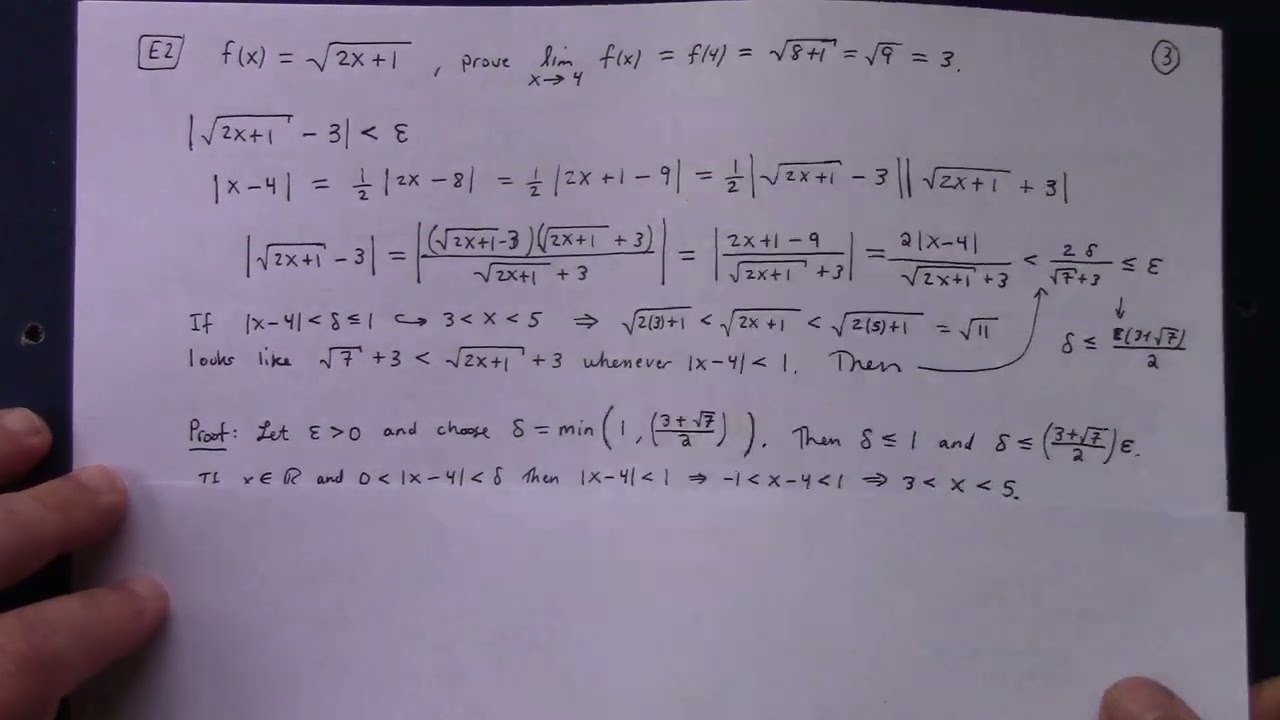 E2 f(x) = √(2x+1) , prove lim x→4 f(x) = f(4) = √(8+1) = √9 = 3. ③
|√(2x+1) - 3| < ε
|x-4| = 1/2 |2x-8| = 1/2 |2x+1-9| = 1/2 |√(2x+1) - 3||√(2x+1) + 3|
|√(2x+1) - 3| = |(√(2x+1)-3)(√(2x+1) + 3) / (√(2x+1) + 3)| = |(2x+1-9) / (√(2x+1) + 3)| = 2|x-4| / (√(2x+1) + 3) < 2δ / (√7+3) ≤ ε
If |x-4| < δ ≤ 1 ↪ 3 < x < 5 ⇒ √(2(3)+1) < √(2x+1) < √(2(5)+1) = √11
↓ δ ≤ ε(3+√7)/2
looks like √7 + 3 < √(2x+1) + 3 whenever |x-4| < 1. Then
Proof: Let ε>0 and choose δ = min(1, ((3+√7)/2) ). Then δ ≤ 1 and δ ≤ ((3+√7)/2)ε.
If x∈ℝ and 0 < |x-4| < δ then |x-4| < 1 ⇒ -1 < x-4 < 1 ⇒ 3 < x < 5.